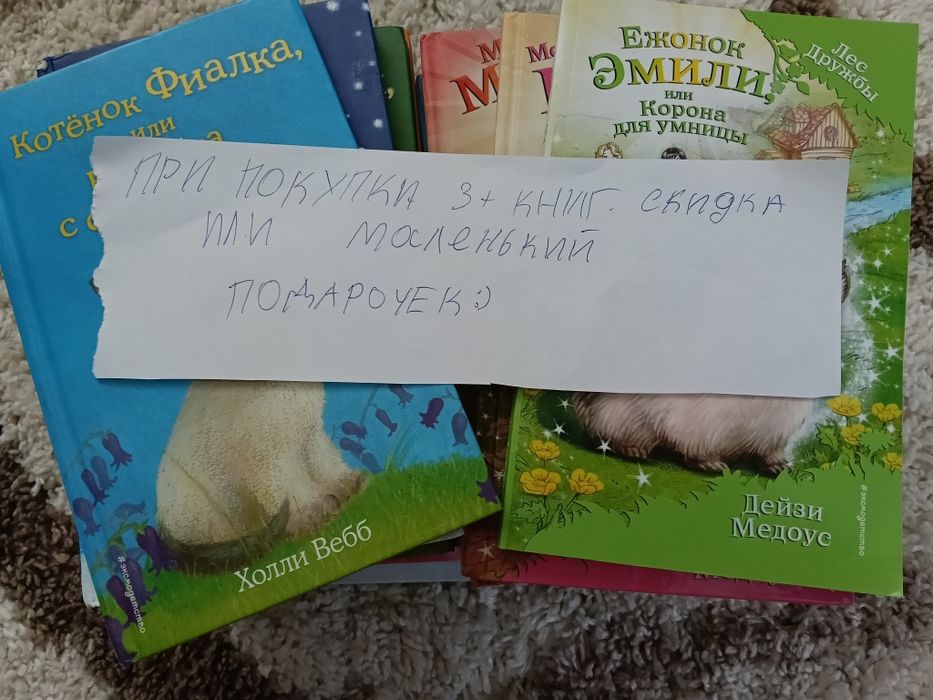 Котёнок Фиалка,
или
с
Ежонок
Эмили,
или
Корона
для умницы
Лес
Дружбы
ПРИ ПОКУПКИ 3+ КНИГ. СКИДКА
ИЛИ маленький
ПОДАРОЧЕК:)
Холли Вебб
#эксмодетство
Дейзи
Медоус
#эксмодетство